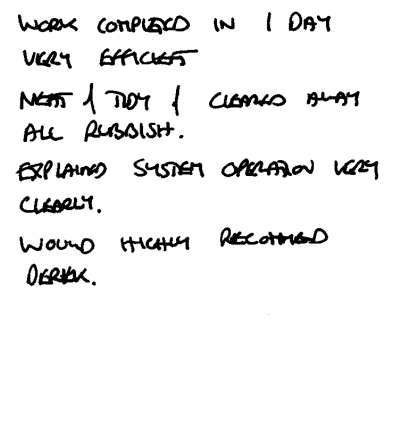 WORK COMPLETED IN 1 DAY
VERY EFFICIENT
NEAT & TIDY & CLEARED AWAY
ALL RUBBISH.
EXPLAINED SYSTEM OPERATION VERY
CLEARLY.
WOULD HIGHLY RECOMMEND
DEREK.